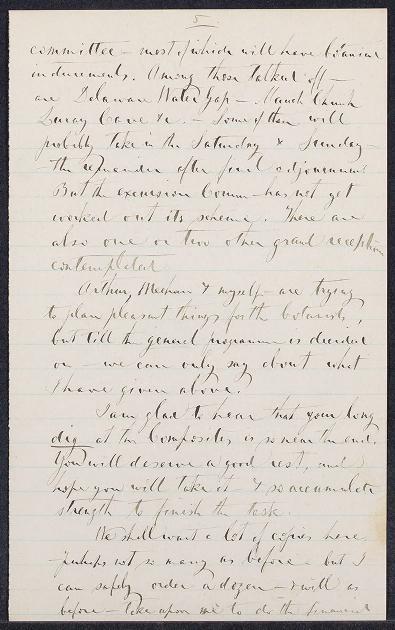 5
committee – most of which will have botanical
inducements. Among those talked off –
are Delaware Water Gap – Mauch Chunk
Luray Cave &c. – Some of them will
probably take in the Saturday & Sunday –
the remainder after final adjournment
But the excursion Comm – has not yet
worked out its scheme. There are
also one or two other grand reception
contemplated.
Arthur, Meehan & myself – are trying
to plan pleasant things for the botanists,
but till the general programme is decided
on – we can only say about what
I have given above.
I am glad to hear that your long
dig at the Composites is so near the end.
You will deserve a good rest, and
hope you will take it – & so accumulate
strength to finish the task.
We shall want a lot of copies here
perhaps not so many as before – but I
can safely order a dozen – & will as
before – take upon me to do the financial